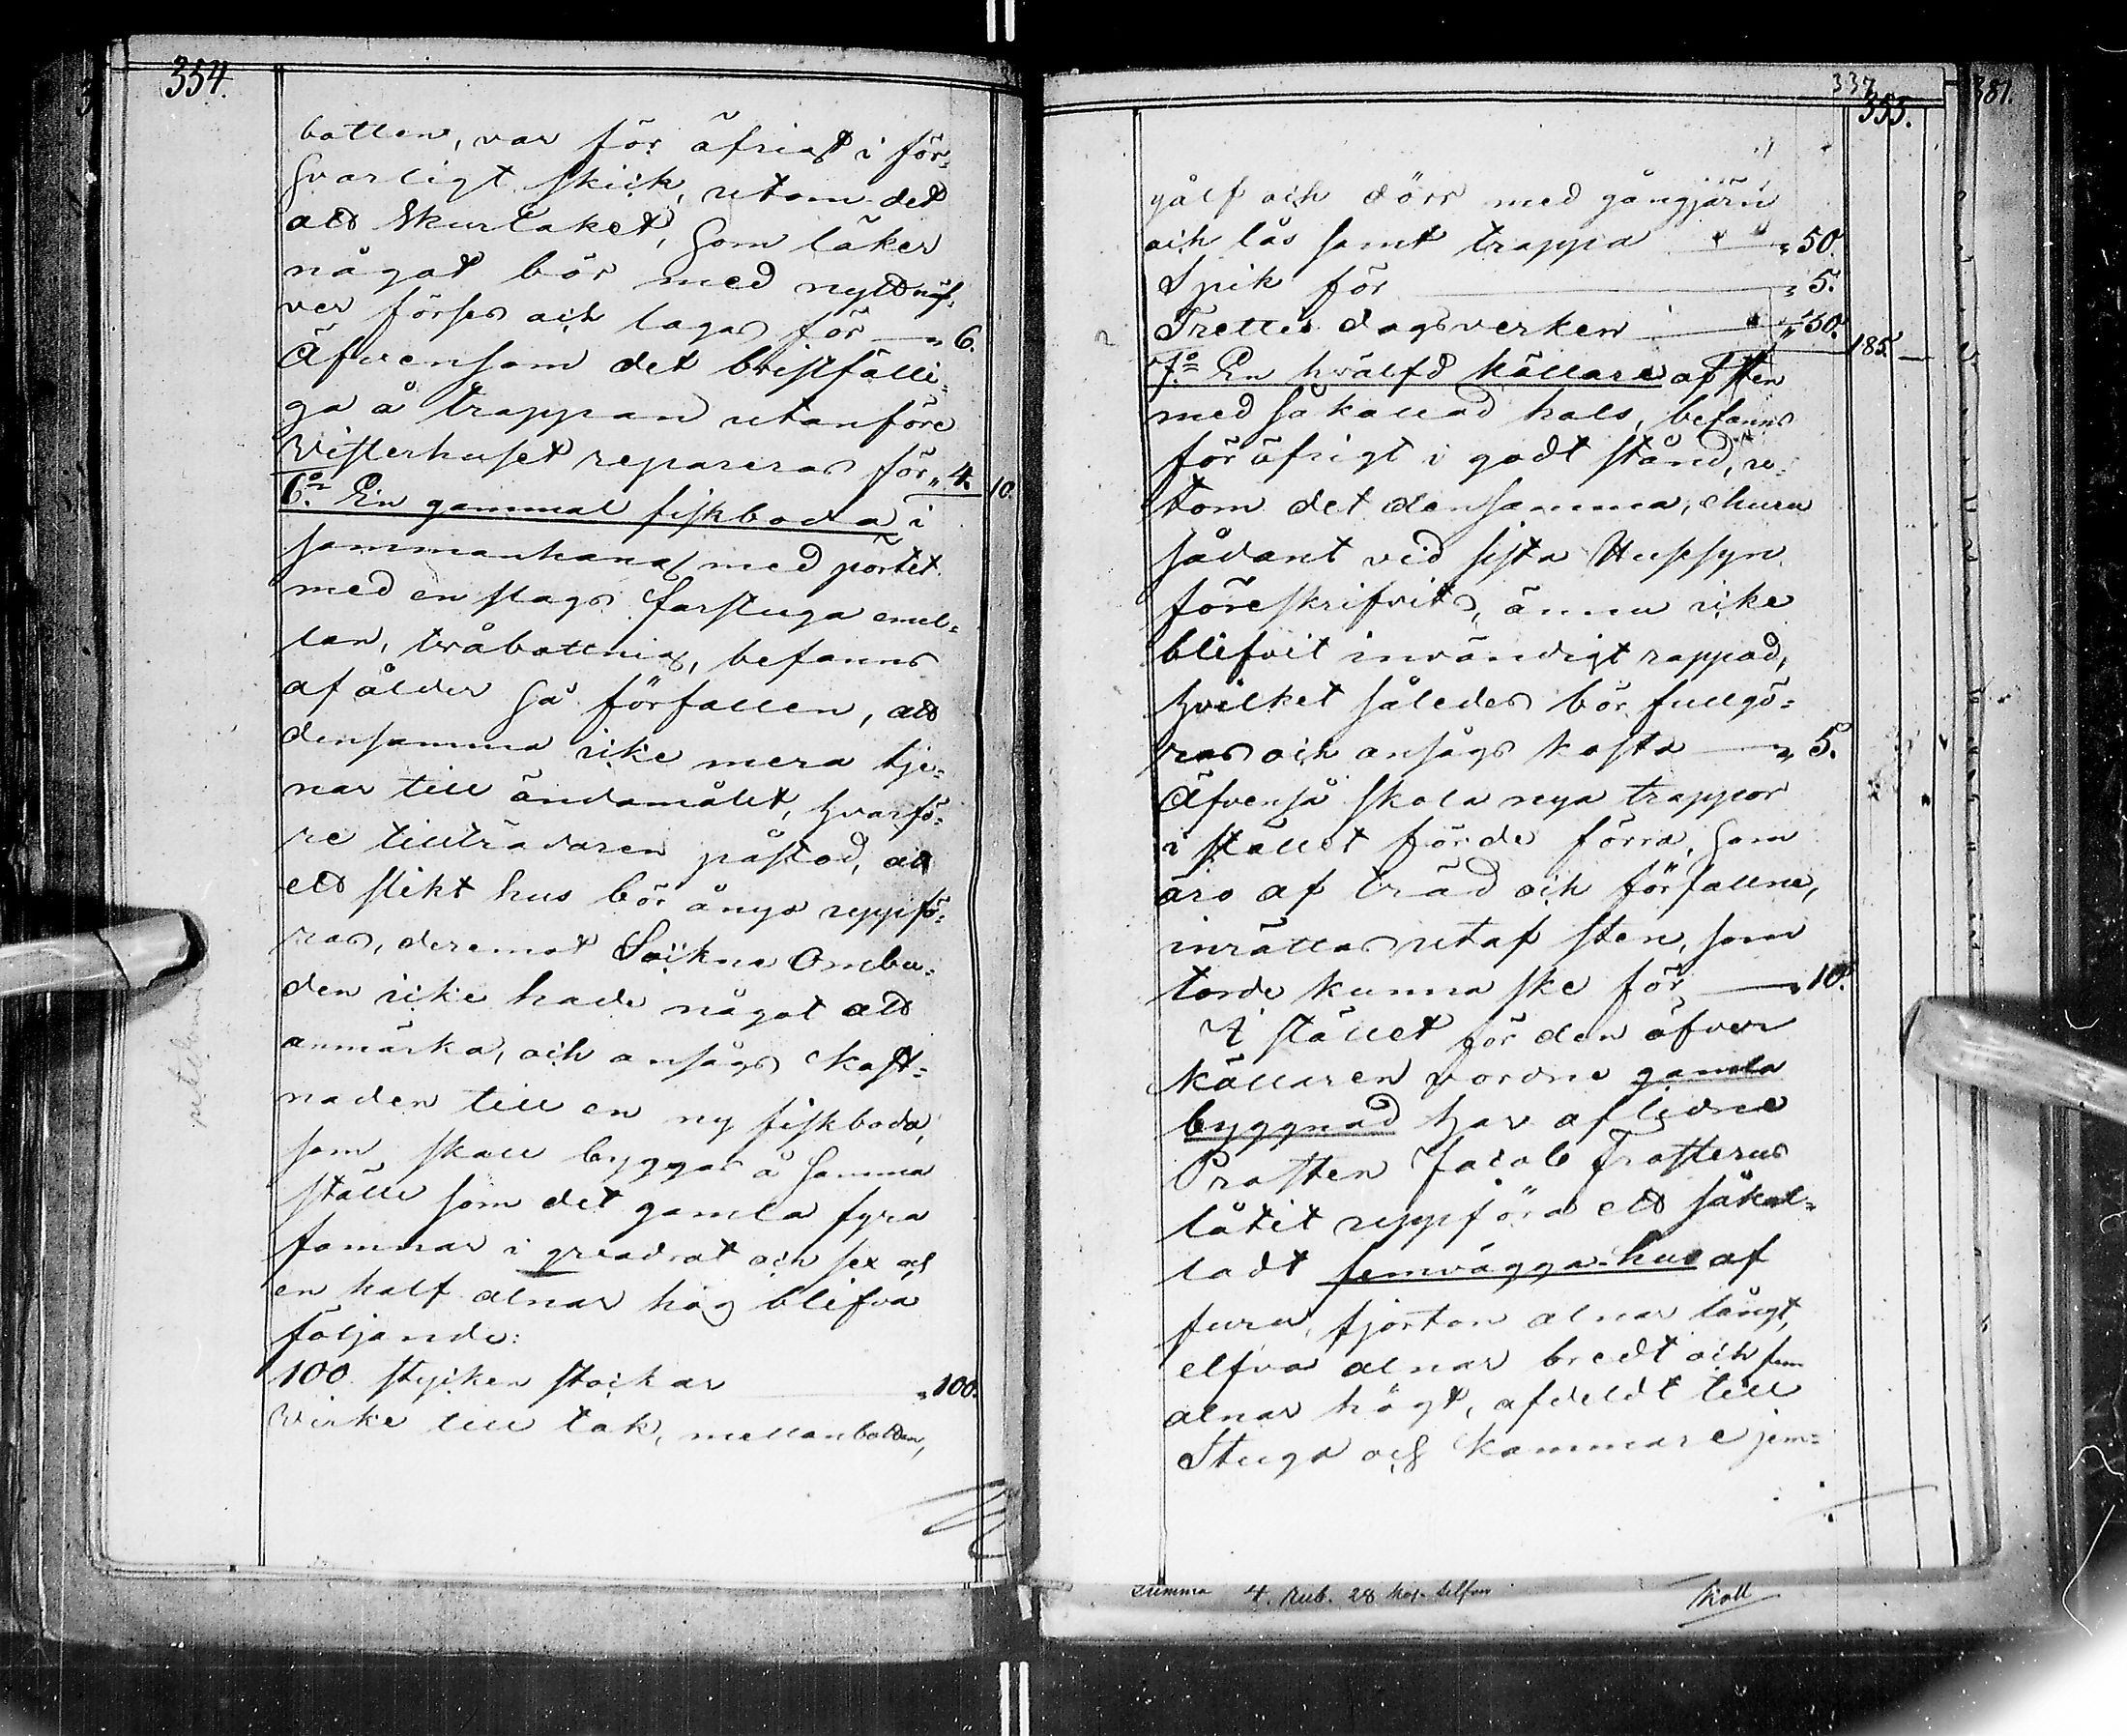 354.
botten, var för öfrigt i för-
svarligt skick, utom det
att Skurtaket, som läker
något bör med nytt näf-
ver förses och lagas för — „ 6.
Äfvensom det bristfälli-
ga å trappan utanföre
Visterhuset repareras för „ 4. 10.
6:o En gammal fiskboda i
sammanhang med pörtet
med en slags farstuga emel-
lan, tvåbottnig, befanns
af ålder så förfallen, att
densamma icke mera tje-
nar till ändamålet, hvarfö-
re tillträdaren påstod, att
ett slikt hus bör ånyo uppfö-
ras, deremot Sockne Ombu-
den icke hade något att
anmärka, och ansågs kost-
naden till en ny fiskboda,
som skall byggas å samma
ställe som det gamla fyra
famnar i quadrat och sex och
en half alnar hög blifva
följande:
100 stycken stockar „ 100.
Virke till tak, mellanbotten,
337
355.
381.
gålf och dörr med gångjärn
och lås samt trappa „ 50.
Spik för „ 5.
Trettio dagsverken „ 30. 185. —
7:o En hvälfd källare af sten
med så kallad hals, befanns
för öfrigt i godt stånd, u-
tom det densamma, ehuru
sådant vid sista Huussyn
föreskrifvits, ännu icke
blifvit invändigt rappad,
hvilket således bör fullgö-
ras och ansågs kosta — „ 5.
Äfvenså skola nya trappor
i stället för de förra, som
äro af träd och förfallne,
inrättas utaf sten, som
torde kunna ske för — „ 10.
I stället för den öfver
källaren vordne gamla
byggnad har aflidne
Prosten Jacob Frosterus
låtit uppföra ett såkal-
ladt femvägga-hus af
furu, fjorton alnar långt,
elfva alnar bredt och fem
alnar högt, afdeldt till
Stuga och kammare jem-
Summa 4. Rub. 28 kop. silfver